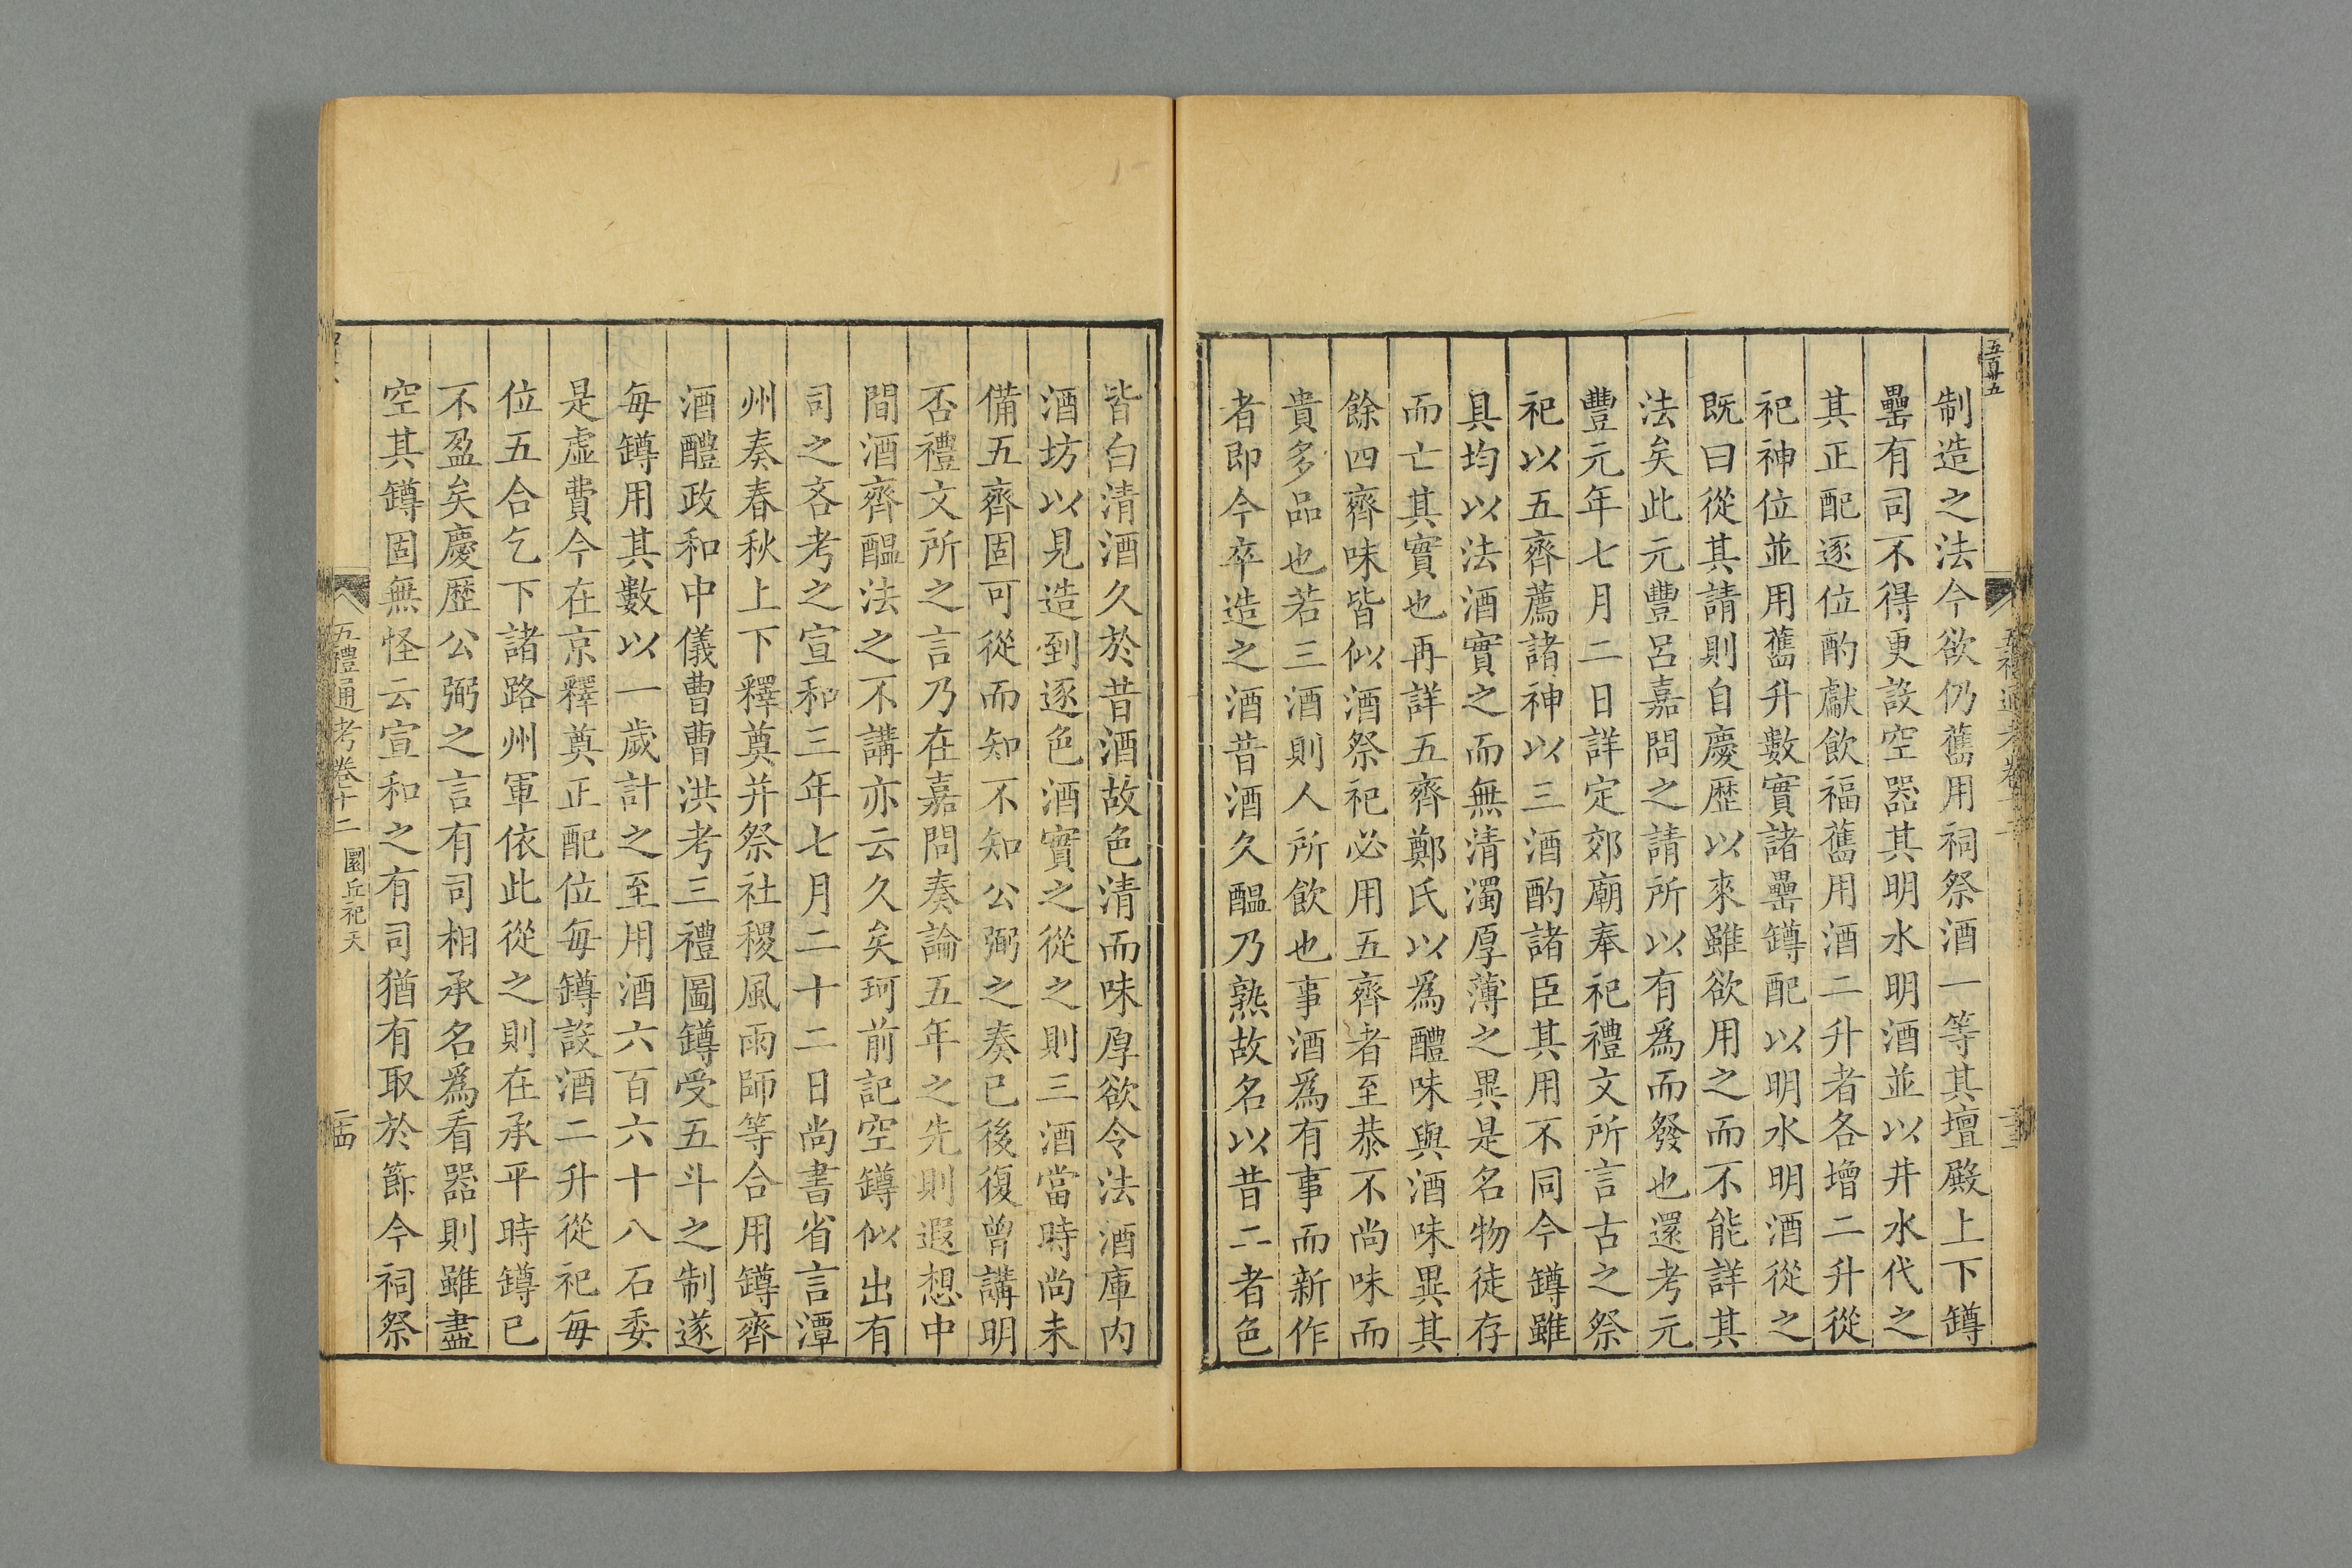 五百廿五
制造之法今欲仍舊用祠祭酒一等其壇殿上下罇
罍有司不得更設空器其明水明酒並以井水代之
其正配逐位酌獻飲福舊用酒二升者各增二升從
祀神位並用舊升數實諸罍罇配以明水明酒從之
既曰從其請則自慶歷以來雖欲用之而不能詳其
法矣此元豐呂嘉問之請所以有為而發也還考元
豐元年七月二日詳定郊廟奉祀禮文所言古之祭
祀以五齊薦諸神以三酒酌諸臣其用不同今罇雖
具均以法酒實之而無清濁厚薄之異是名物徒存
而亡其實也再詳五齊鄭氏以爲醴味與酒味異其
餘四齊味皆似酒祭祀必用五齊者至恭不尚味而
貴多品也若三酒則人所飲也事酒爲有事而新作
者即今卒造之酒昔酒久醖乃熟故名以昔二者色
皆白清酒久於昔酒故色清而味厚欲令法酒庫内
酒坊以見造到逐色酒實之從之則三酒當時尚未
備五齊固可從而知不知公弼之奏已後復曾講明
否禮文所之言乃在嘉問奏論五年之先則遐想中
間酒齊醖法之不講亦云久矣珂前記空罇似出有
司之吝考之宣和三年七月二十二日尚書省言潭
州奏春秋上下釋奠并祭社稷風雨師等合用罇齊
酒醴政和中儀曹曹洪考三禮圖罇受五斗之制遂
每罇用其數以一歲計之至用酒六百六十八石委
是虛費今在京釋奠正配位每罇設酒二升從祀每
位五合乞下諸路州軍依此從之則在承平時罇已
不盈矣慶歷公弼之言有司相承名爲看器則雖盡
空其罇固無怪云宣和之有司猶有取於節今祠祭
五禮通考卷十二 圜丘祀天